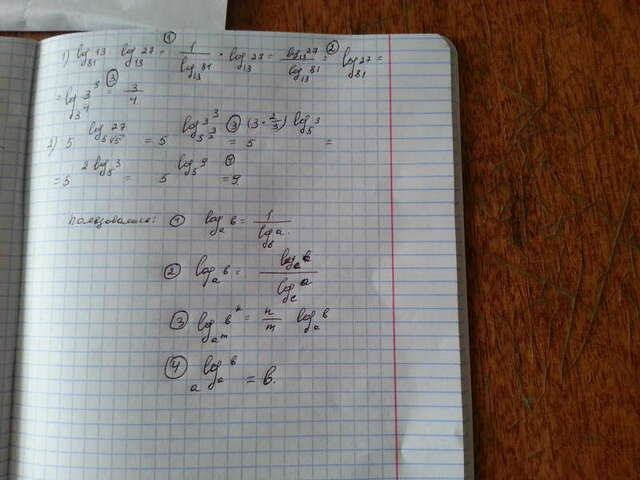 1) log₈₁ 13 · log₁₃ 27 =① 1/log₁₃ 81 · log₁₃ 27 = log₁₃ 27/log₁₃ 81 =② log₈₁ 27 =
= log_{3⁴} 3³ =③ 3/4
2) 5^{log_{5√5} 27} = 5^{log_{5^{3/2}} 3³} =③ 5^{(3·2/3) log₅ 3} =
= 5^{2 log₅ 3} = 5^{log₅ 9} =④ 9.
Пользовались: ① logₐ в = 1/log_в a.
② logₐ в = log_c в/log_c a
③ log_{a^m} в^n = n/m logₐ в
④ a^{logₐ в} = в.